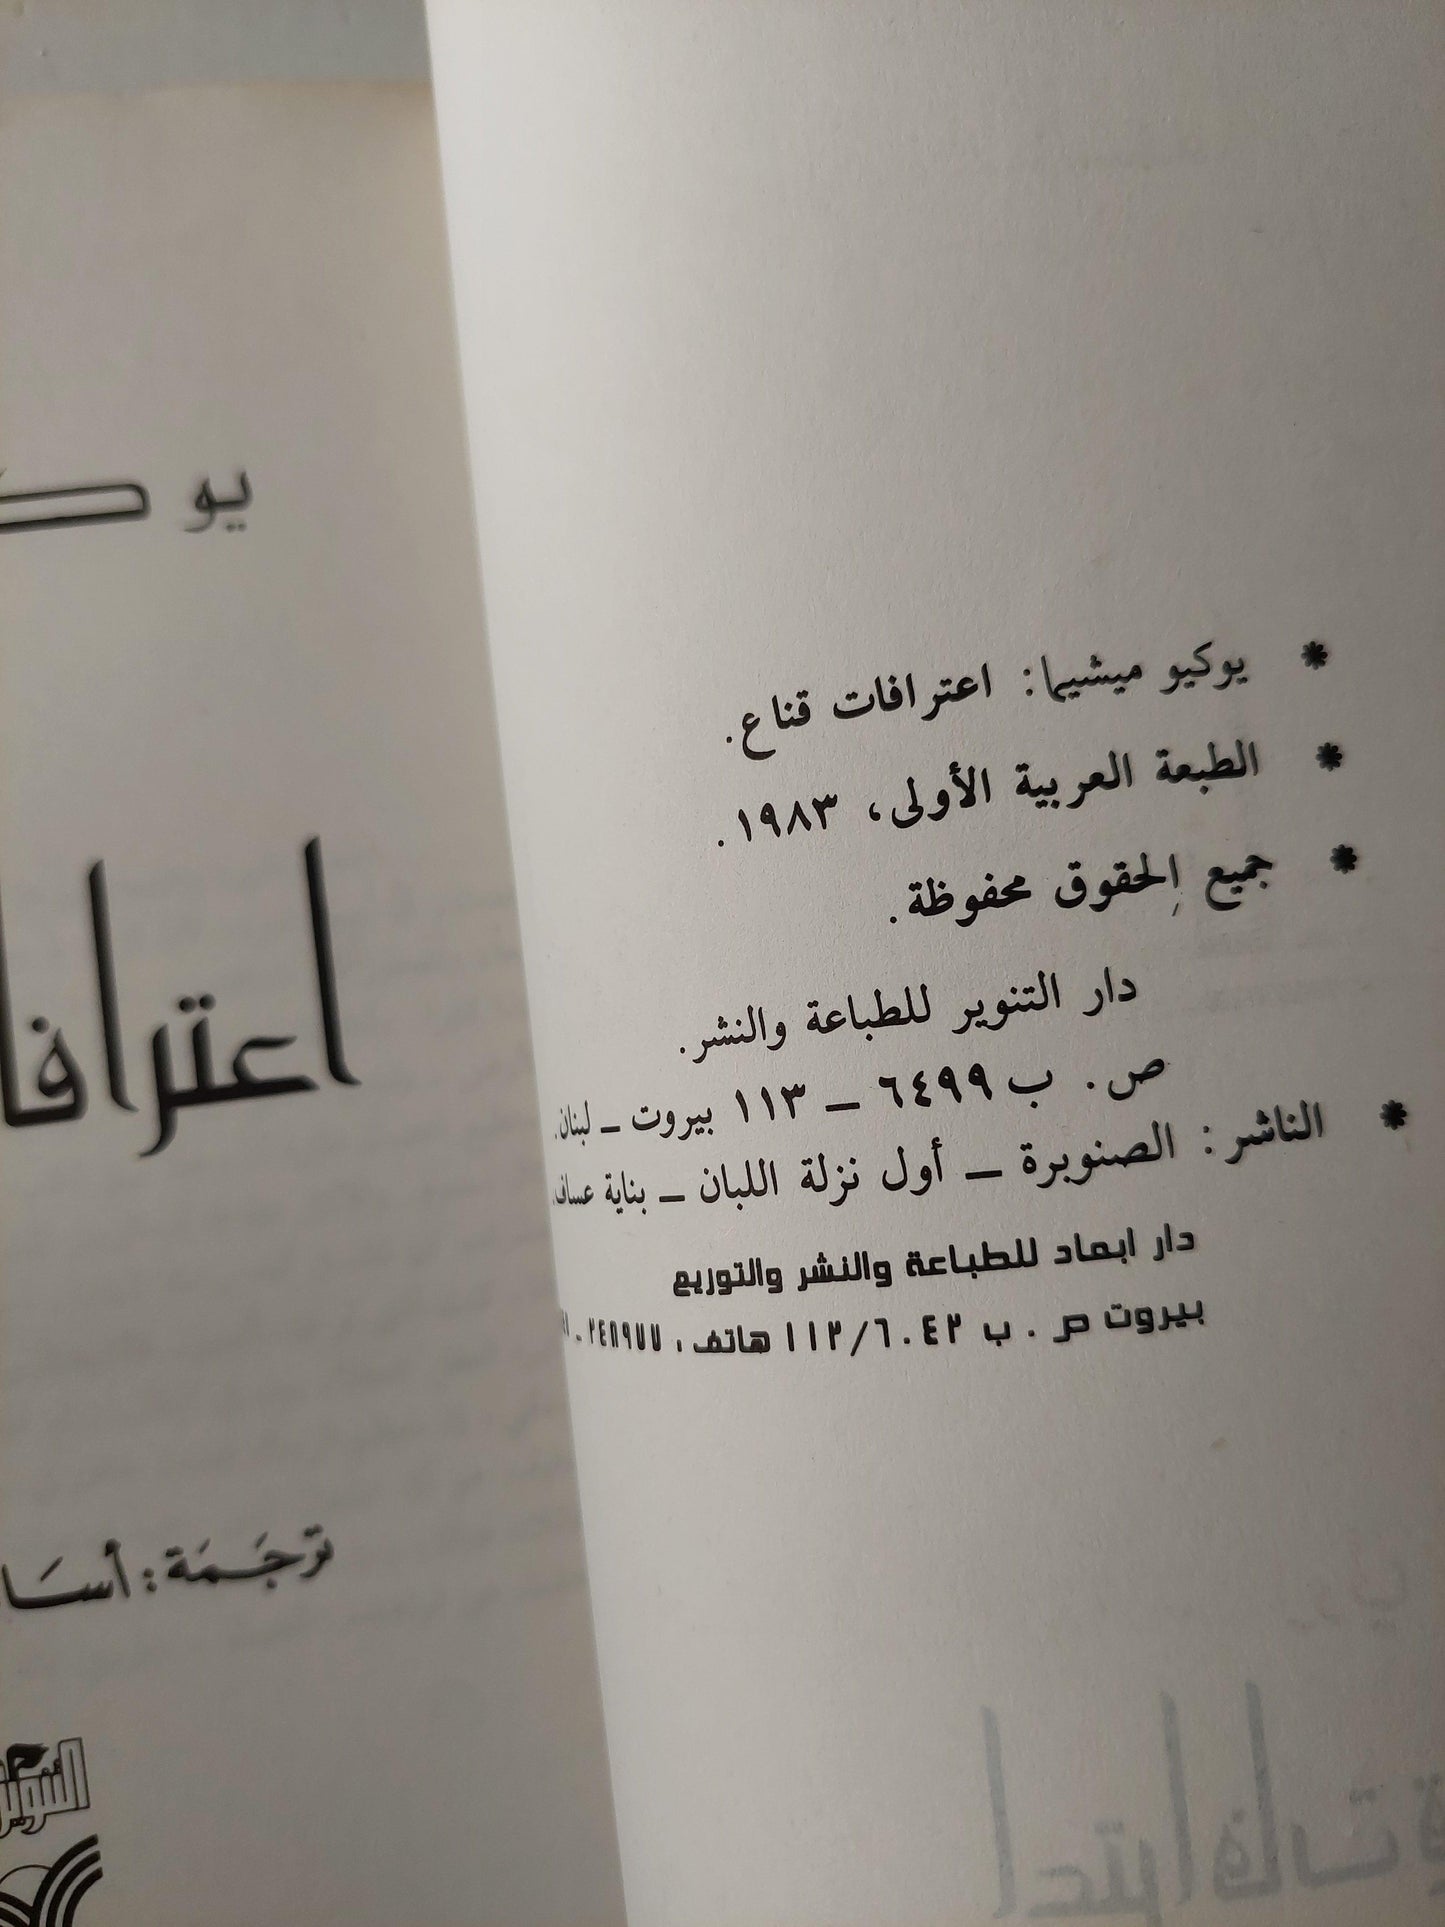 * يوكيو ميشيما: اعترافات قناع.
* الطبعة العربية الأولى، ١٩٨٣.
* جميع الحقوق محفوظة.
دار التنوير للطباعة والنشر.
ص. ب ٦٤٩٩ – ١١٣ بيروت – لبنان.
* الناشر: الصنوبرة – أول نزلة اللبان – بناية عساف.
دار ابعاد للطباعة والنشر والتوزيع
بيروت ص. ب ١١٢/٦٠٤٢ هاتف، ٢٤٨٩٧٧ -
يو ك
اعترافا
ترجَمَة: أسَا
التنوير